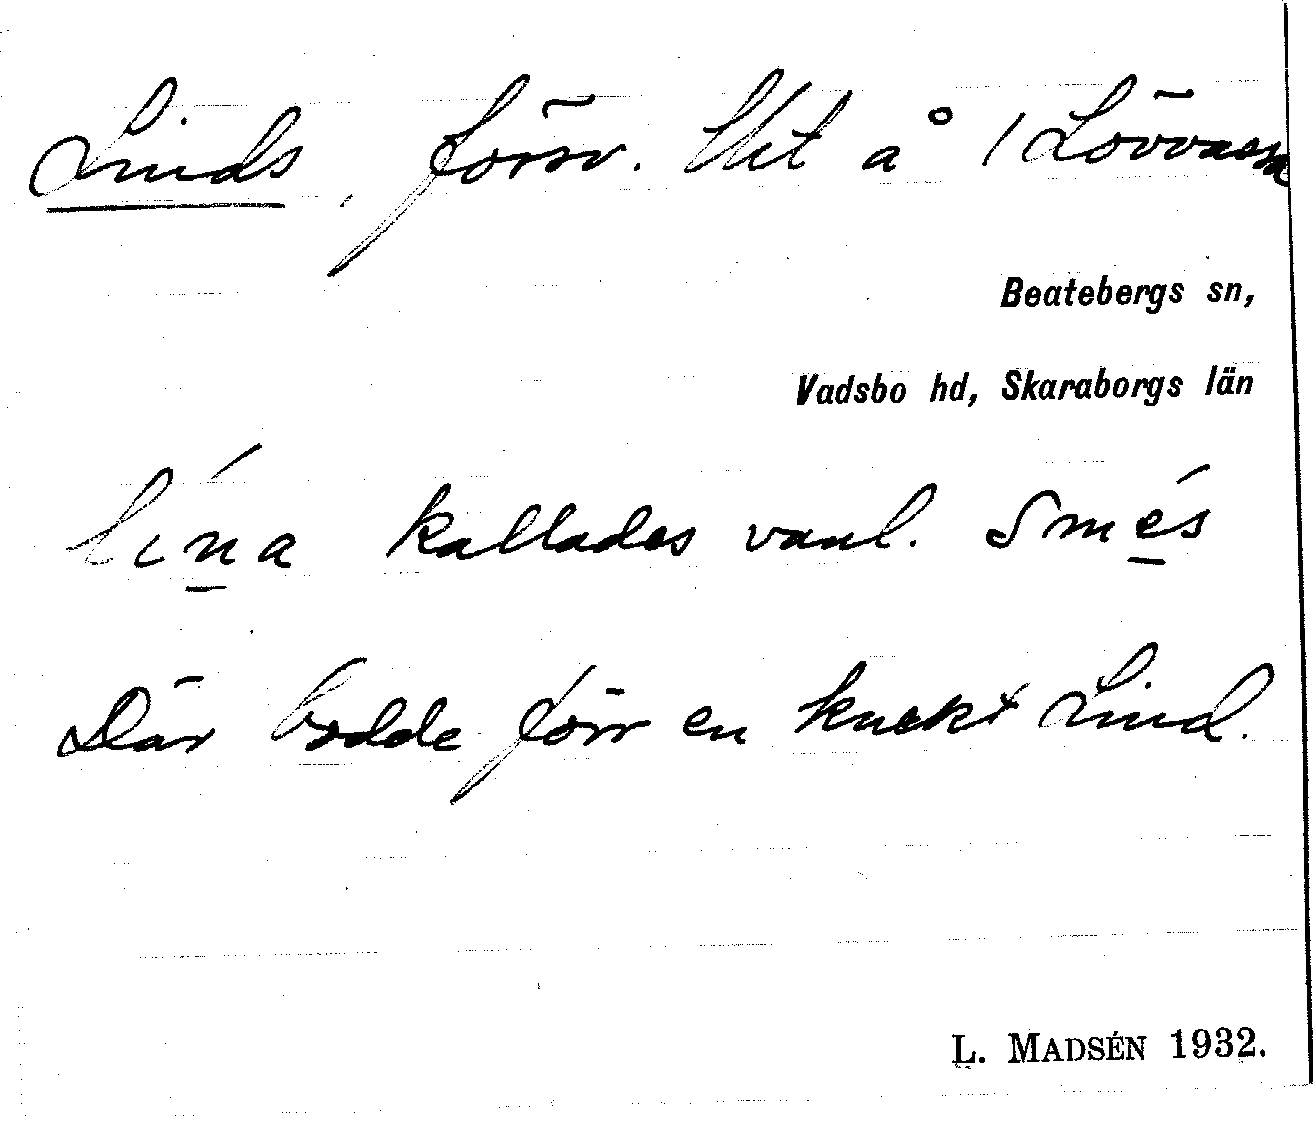 Linds, försv. lht å 1 Lövåsen
Beatebergs sn,
Vadsbo hd, Skaraborgs län
kallades vanl. Smés
Där bodde förr en knekt Lind.
L. MADSÉN 1932.